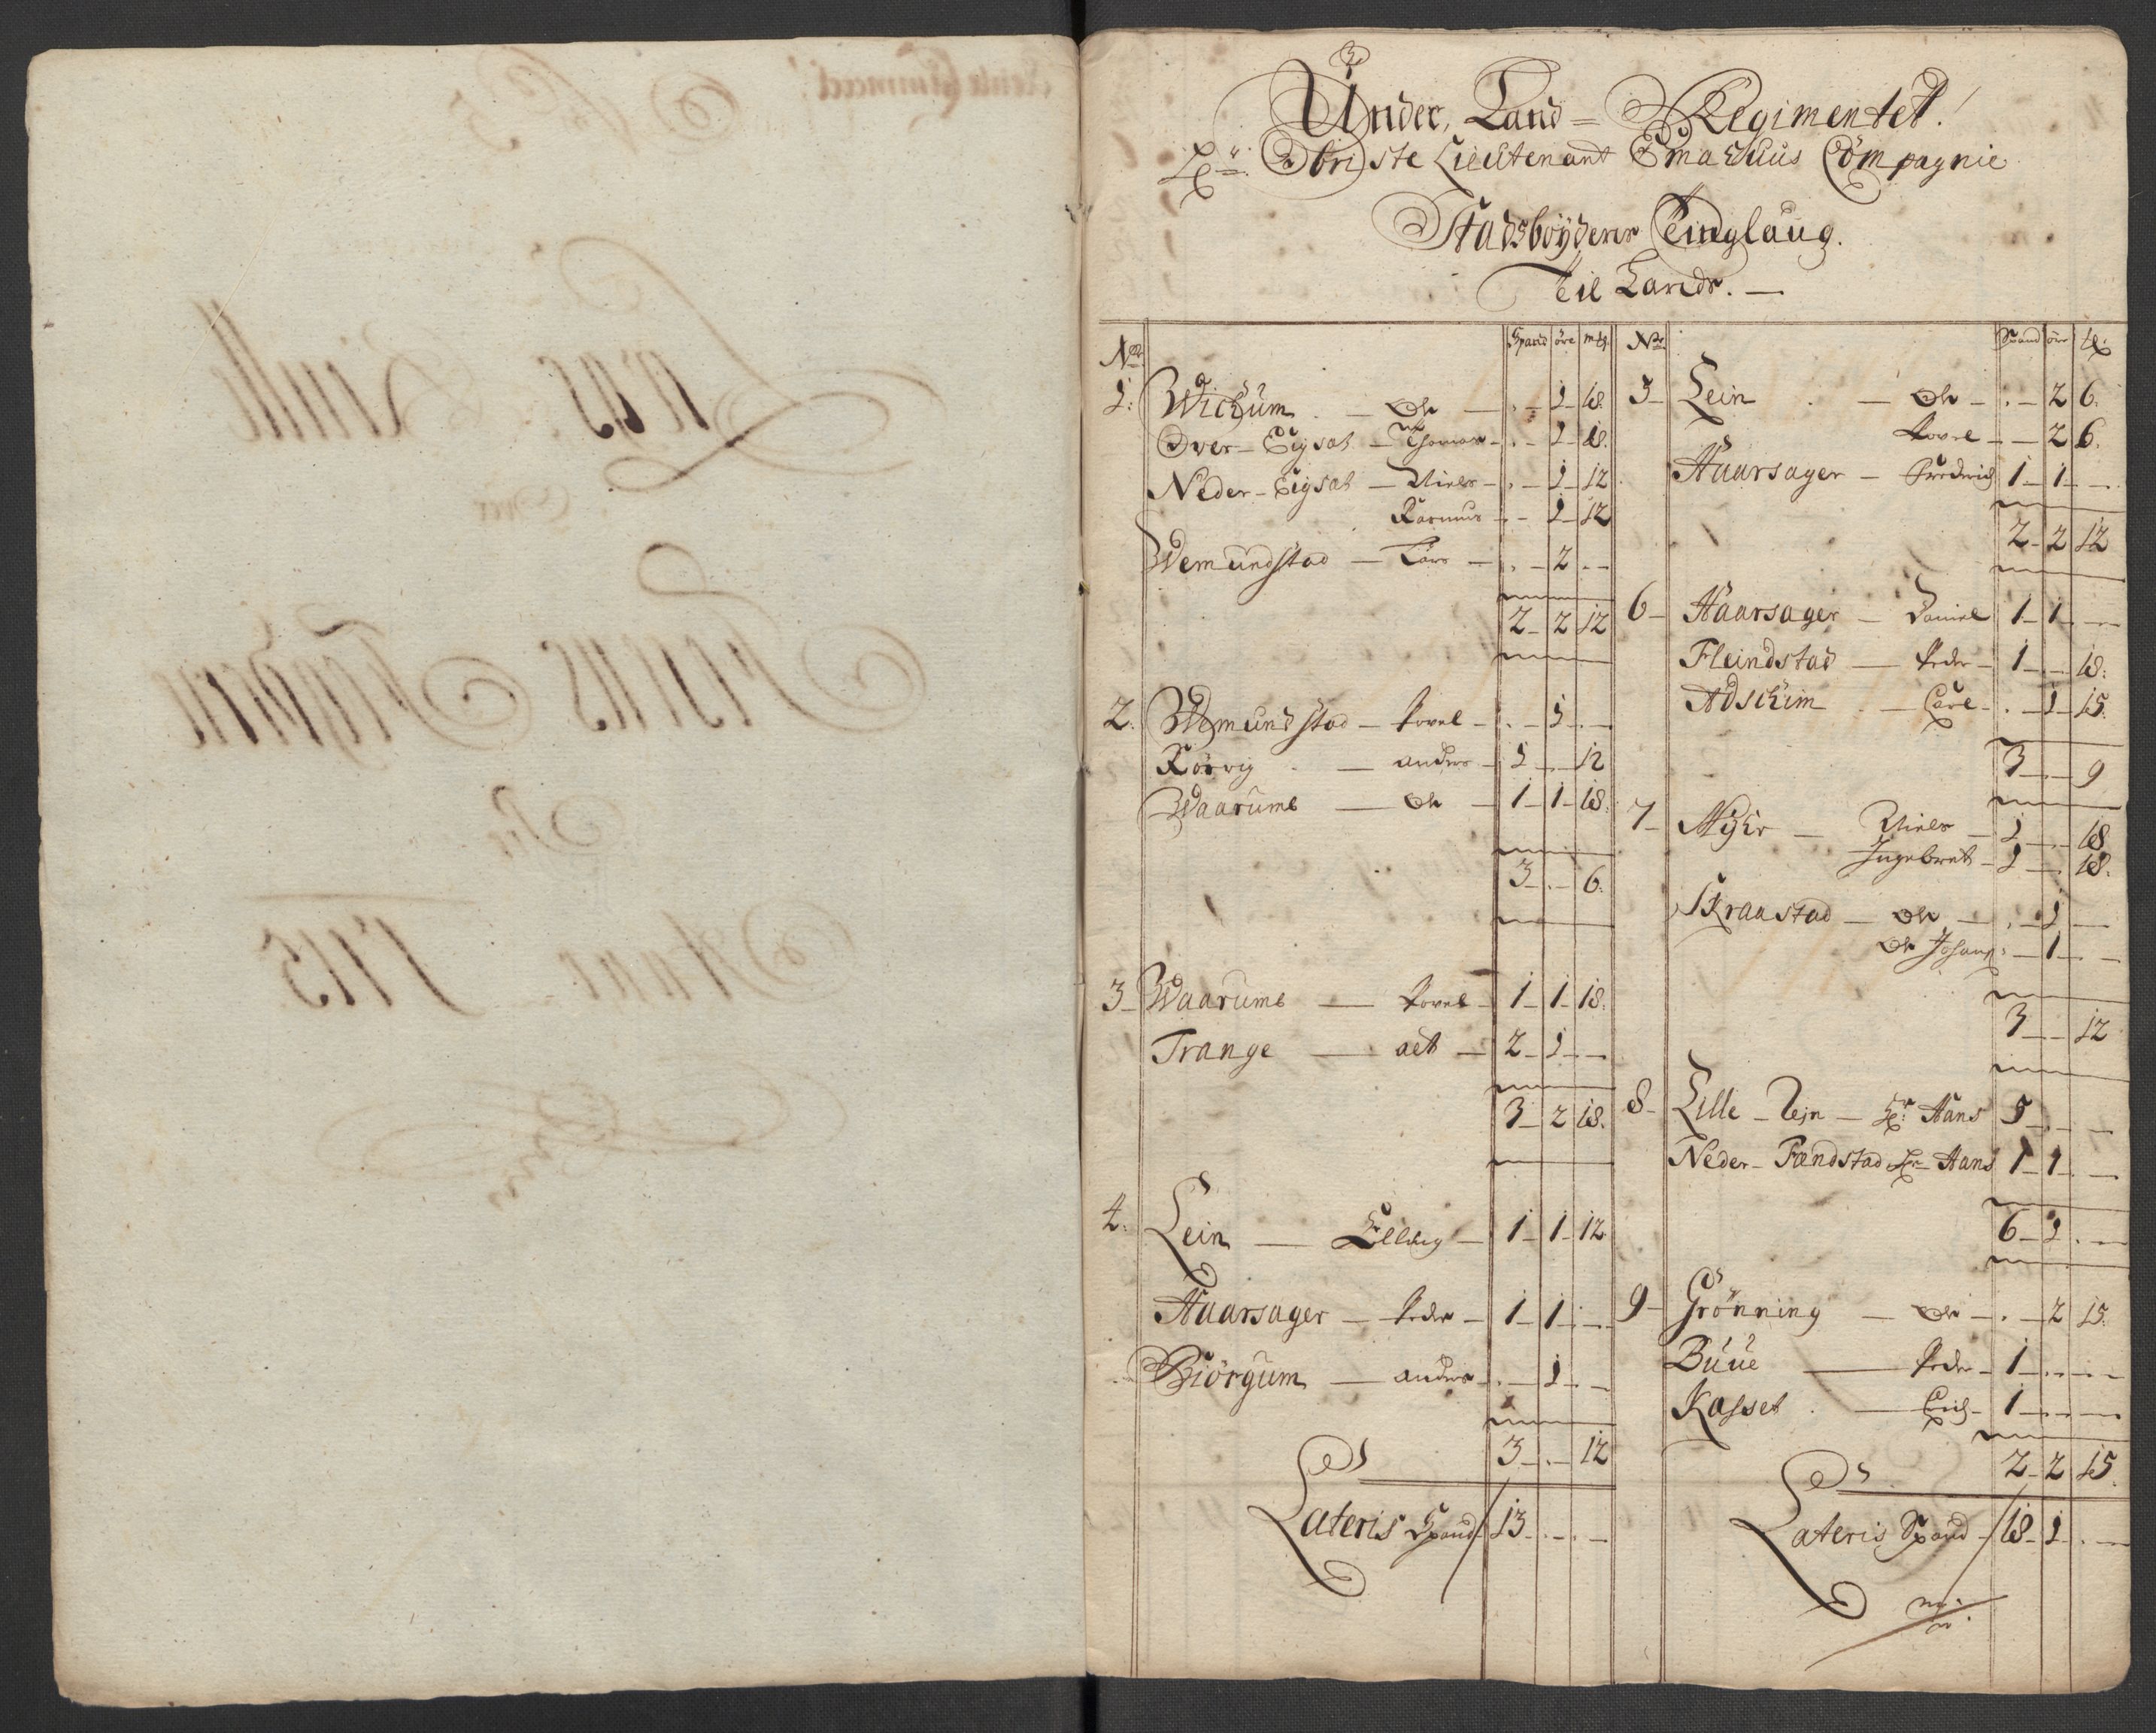 Under, Land-Regimentet.
Hr: Obriste Lieutenant Emahuus Compagnie
Stadsbøydens Tinglaug.
Til Lands. —
No Spand øre mkl.
1. Wichum — Ole — . — 1 — 18.
Over-Eigsat — Thomas — . — 1 — 18.
Neder-Eigsat — Niels — . — 1 — 12
Rasmus — . — 1 — 12
Wemundstad — Lars — . — 2 . —
2 — 2 12
2. Wemundstad — Povel — . — 1 . —
Rørvig — anders — 1 — . 12
Waarumb — Ole — 1 — 1 — 18.
3 — . — 6.
3 — Waarumb — Povel — 1 — 1 — 18.
Trange — — 2 — 1 — . —
3 — 2 18.
4. Lein — Elling — 1 — 1 — 12
Haarsager — Peder — 1 — 1 — . —
Biørgum — anders — . — 1 — . —
3 — . — 12
Lateris Spand 13 — . — . —
No Spand øre
5 — Lein — Ole — . — 2 6.
Povel — — 2 6.
Haarsager — Frederich 1 — 1 — . —
2 — 2 12
6 — Haarsager — Daniel 1 — 1 — . —
Fleindstad — Peder — 1 — . — 18.
Adschim — Carl — . — 1 — 15.
3 — . — 9
7 — Myhr — Niels — 1 — . — 18
Ingebret — 1 — . — 18.
Skraastad — Ole — . — 1 —
Ole Johans: — 1 — . —
3 — . — 12
8 — Lille-Lejn — Hr: Hans 5 — . —
Neder-Fændstad Hr: Hans 1 — 1 — . —
6 — 1 . —
9 — Grønning — Ole — . — 2 15.
Buue — Peder — 1 — . — . —
Kasset — Erich — 1 — . — . —
2 — 2 15.
Lateris Spand — 18 — 1 — . —